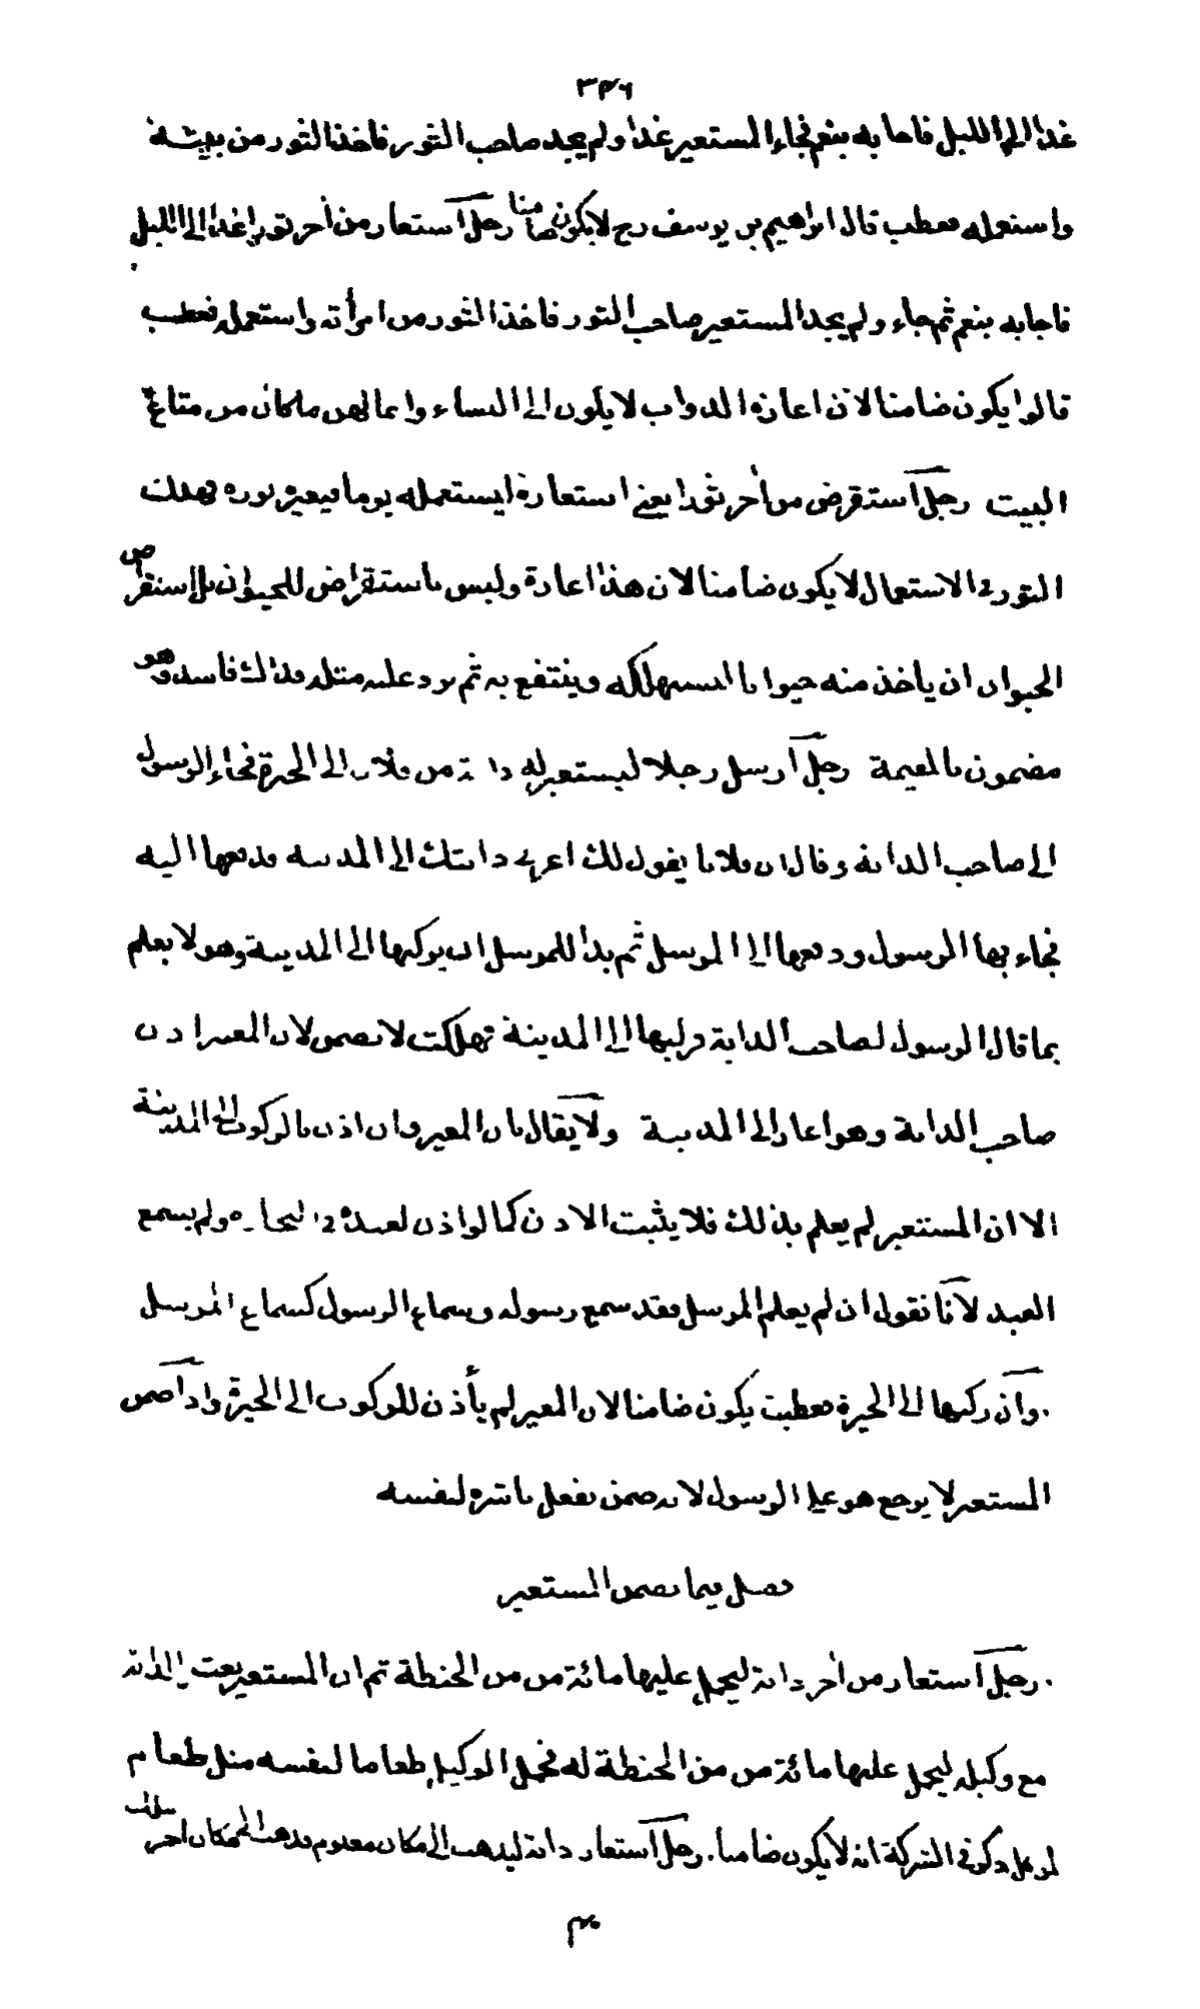 ٣٤٦
غدا الى الليل فاجابه بنعم فجاء المستعير غدا ولم يجد صاحب الثور فاخذ الثور من بيته
واستعمله فعطب قال ابراهيم بن يوسف رح لا يكون ضامنا رجل استعار من اخر ثورا غدا الى الليل
فاجابه بنعم ثم جاء ولم يجد المستعير صاحب الثور فاخذ الثور من امرأته واستعمله فعطب
قالوا يكون ضامنا لان اعارة الدواب لا يكون الى النساء وانما لهن ما كان من متاع
البيت رجل استقرض من اخر ثورا يعني استعارة ليستعمله يوما فيعيره ثوره فهلك
الثور في الاستعمال لا يكون ضامنا لان هذا اعارة وليس باستقراض للحيوان بل استقراض
الحيوان ان ياخذ منه حيوانا ليستهلكه وينتفع به ثم يرد عليه مثله فذلك فاسد وهو
مضمون بالقيمة رجل ارسل رجلا ليستعير له دابة من فلان الى الحيرة فجاء الرسول
الى صاحب الدابة وقال ان فلانا يقول لك اعرني دابتك الى المدينة فدفعها اليه
فجاء بها الرسول ودفعها الى المرسل ثم بدا للمرسل ان يركبها الى المدينة وهو لا يعلم
بما قال الرسول لصاحب الدابة فركبها الى المدينة فهلكت لا يضمن لان المعير اذن
صاحب الدابة وهو اعار الى المدينة ولا يقال بان المعير وان اذن بالركوب الى المدينة
الا ان المستعير لم يعلم بذلك فلا يثبت الاذن كما لو اذن لعبده في التجارة ولم يسمع
العبد لانا نقول ان لم يعلم المرسل فقد سمع رسوله وسماع الرسول كسماع المرسل
وان ركبها الى الحيرة فعطبت يكون ضامنا لان المعير لم يأذن للركوب الى الحيرة واذا ضمن
المستعير لا يرجع هو على الرسول لانه ضمن بفعل باشره لنفسه
فصل فيما يضمن المستعير
رجل استعار من اخر دابة ليحمل عليها مائة من من الحنطة ثم ان المستعير بعث بالدابة
مع وكيله ليحمل عليها مائة من من الحنطة له فحمل الوكيل طعاما لنفسه مثل طعام
الموكل ذكر في الشركة انه لا يكون ضامنا. رجل استعار دابة ليذهب الى مكان معلوم فذهب الى مكان اخر